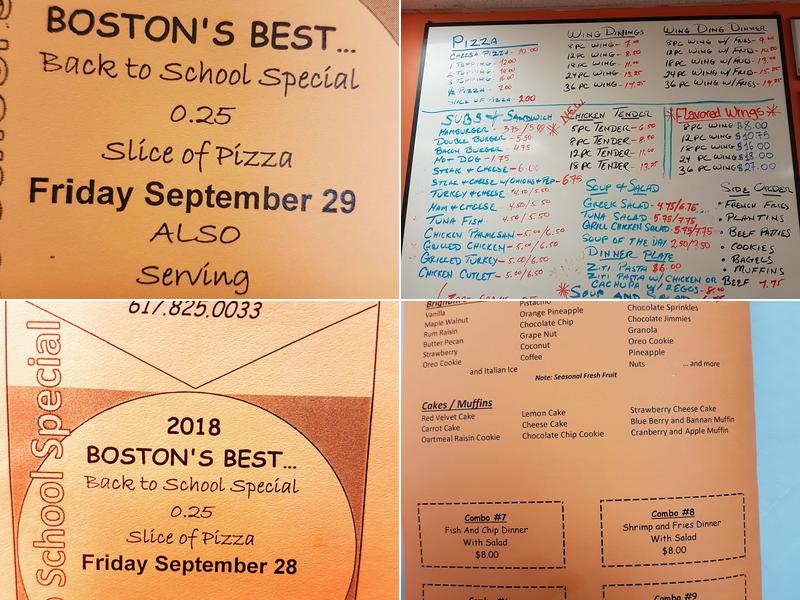 BOSTON'S BEST...
Back to School Special
0.25
Slice of Pizza
Friday September 29
ALSO
Serving
PIZZA
CHEESE PIZZA - 10.00
1 TOPPING - 12.00
2 TOPPING
3 TOPPING
1/2 PIZZA - 7.00
SLICE OF PIZZA 2.00
WING DINGS
8PC WING - 7.00
12PC WING - 8.50
18PC WING - 11.00
24PC WING - 13.25
36 PC WING - 17.25
WING DING DINNER
8PC WING W/ FRIES
12PC WING W/ FRIES
18PC WING W/ FRIES
24PC WING W/ FRIES
36 PC WING W/ FRIES
SUBS & SANDWICH
HAMBURGER
DOUBLE BURGER - 5.50
BACON BURGER - 4.75
HOT DOG - 1.75
STEAK & CHEESE - 6.00
STEAK & CHEESE W/ ONIONS & PEP - 6.75
TURKEY & CHEESE 4.50/5.50
HAM & CHEESE 4.50/5.50
TUNA FISH 4.50/5.50
CHICKEN PARMESAN - 5.00/6.50
GRILLED CHICKEN - 5.00/6.50
GRILLED TURKEY - 5.00/6.50
CHICKEN CUTLET - 5.00/6.50
NEW
CHICKEN TENDER
5PC TENDER - 6.50
8PC TENDER - 8.50
12PC TENDER - 11.00
18PC TENDER - 13.25
Flavored Wings
8PC WING $8.00
12PC WING $10.75
18PC WING $16.00
24 PC WING $18.00
36 PC WING $27.00
SOUP & SALAD
GREEK SALAD - 4.75/6.75
TUNA SALAD 5.75/7.75
GRILL CHICKEN SALAD 5.75/7.75
SOUP OF THE DAY 2.50/3.50
DINNER PLATE
ZITI PASTA $6.00
ZITI PASTA W/ CHICKEN OR BEEF
CACHUPA W/ EGGS
SOUP AND
SIDE ORDER
• FRENCH FRIES
• PLANTINS
• BEEF PATTIES
• COOKIES
• BAGELS
• MUFFINS
1.75
617.825.0033
School Special
2018
BOSTON'S BEST...
Back to School Special
0.25
Slice of Pizza
Friday September 28
Vanilla
Maple Walnut
Rum Raisin
Butter Pecan
Strawberry
Oreo Cookie
Pistachio
Orange Pineapple
Chocolate Chip
Grape Nut
Coconut
Coffee
Chocolate Sprinkles
Chocolate Jimmies
Granola
Oreo Cookie
Pineapple
Nuts ... and more
and Italian Ice
Note: Seasonal Fresh Fruit
Cakes / Muffins
Red Velvet Cake
Carrot Cake
Oartmeal Raisin Cookie
Lemon Cake
Cheese Cake
Chocolate Chip Cookie
Strawberry Cheese Cake
Blue Berry and Bannan Muffin
Cranberry and Apple Muffin
Combo #7
Fish And Chip Dinner
With Salad
$8.00
Combo #8
Shrimp and Fries Dinner
With Salad
$8.00
Combo #9